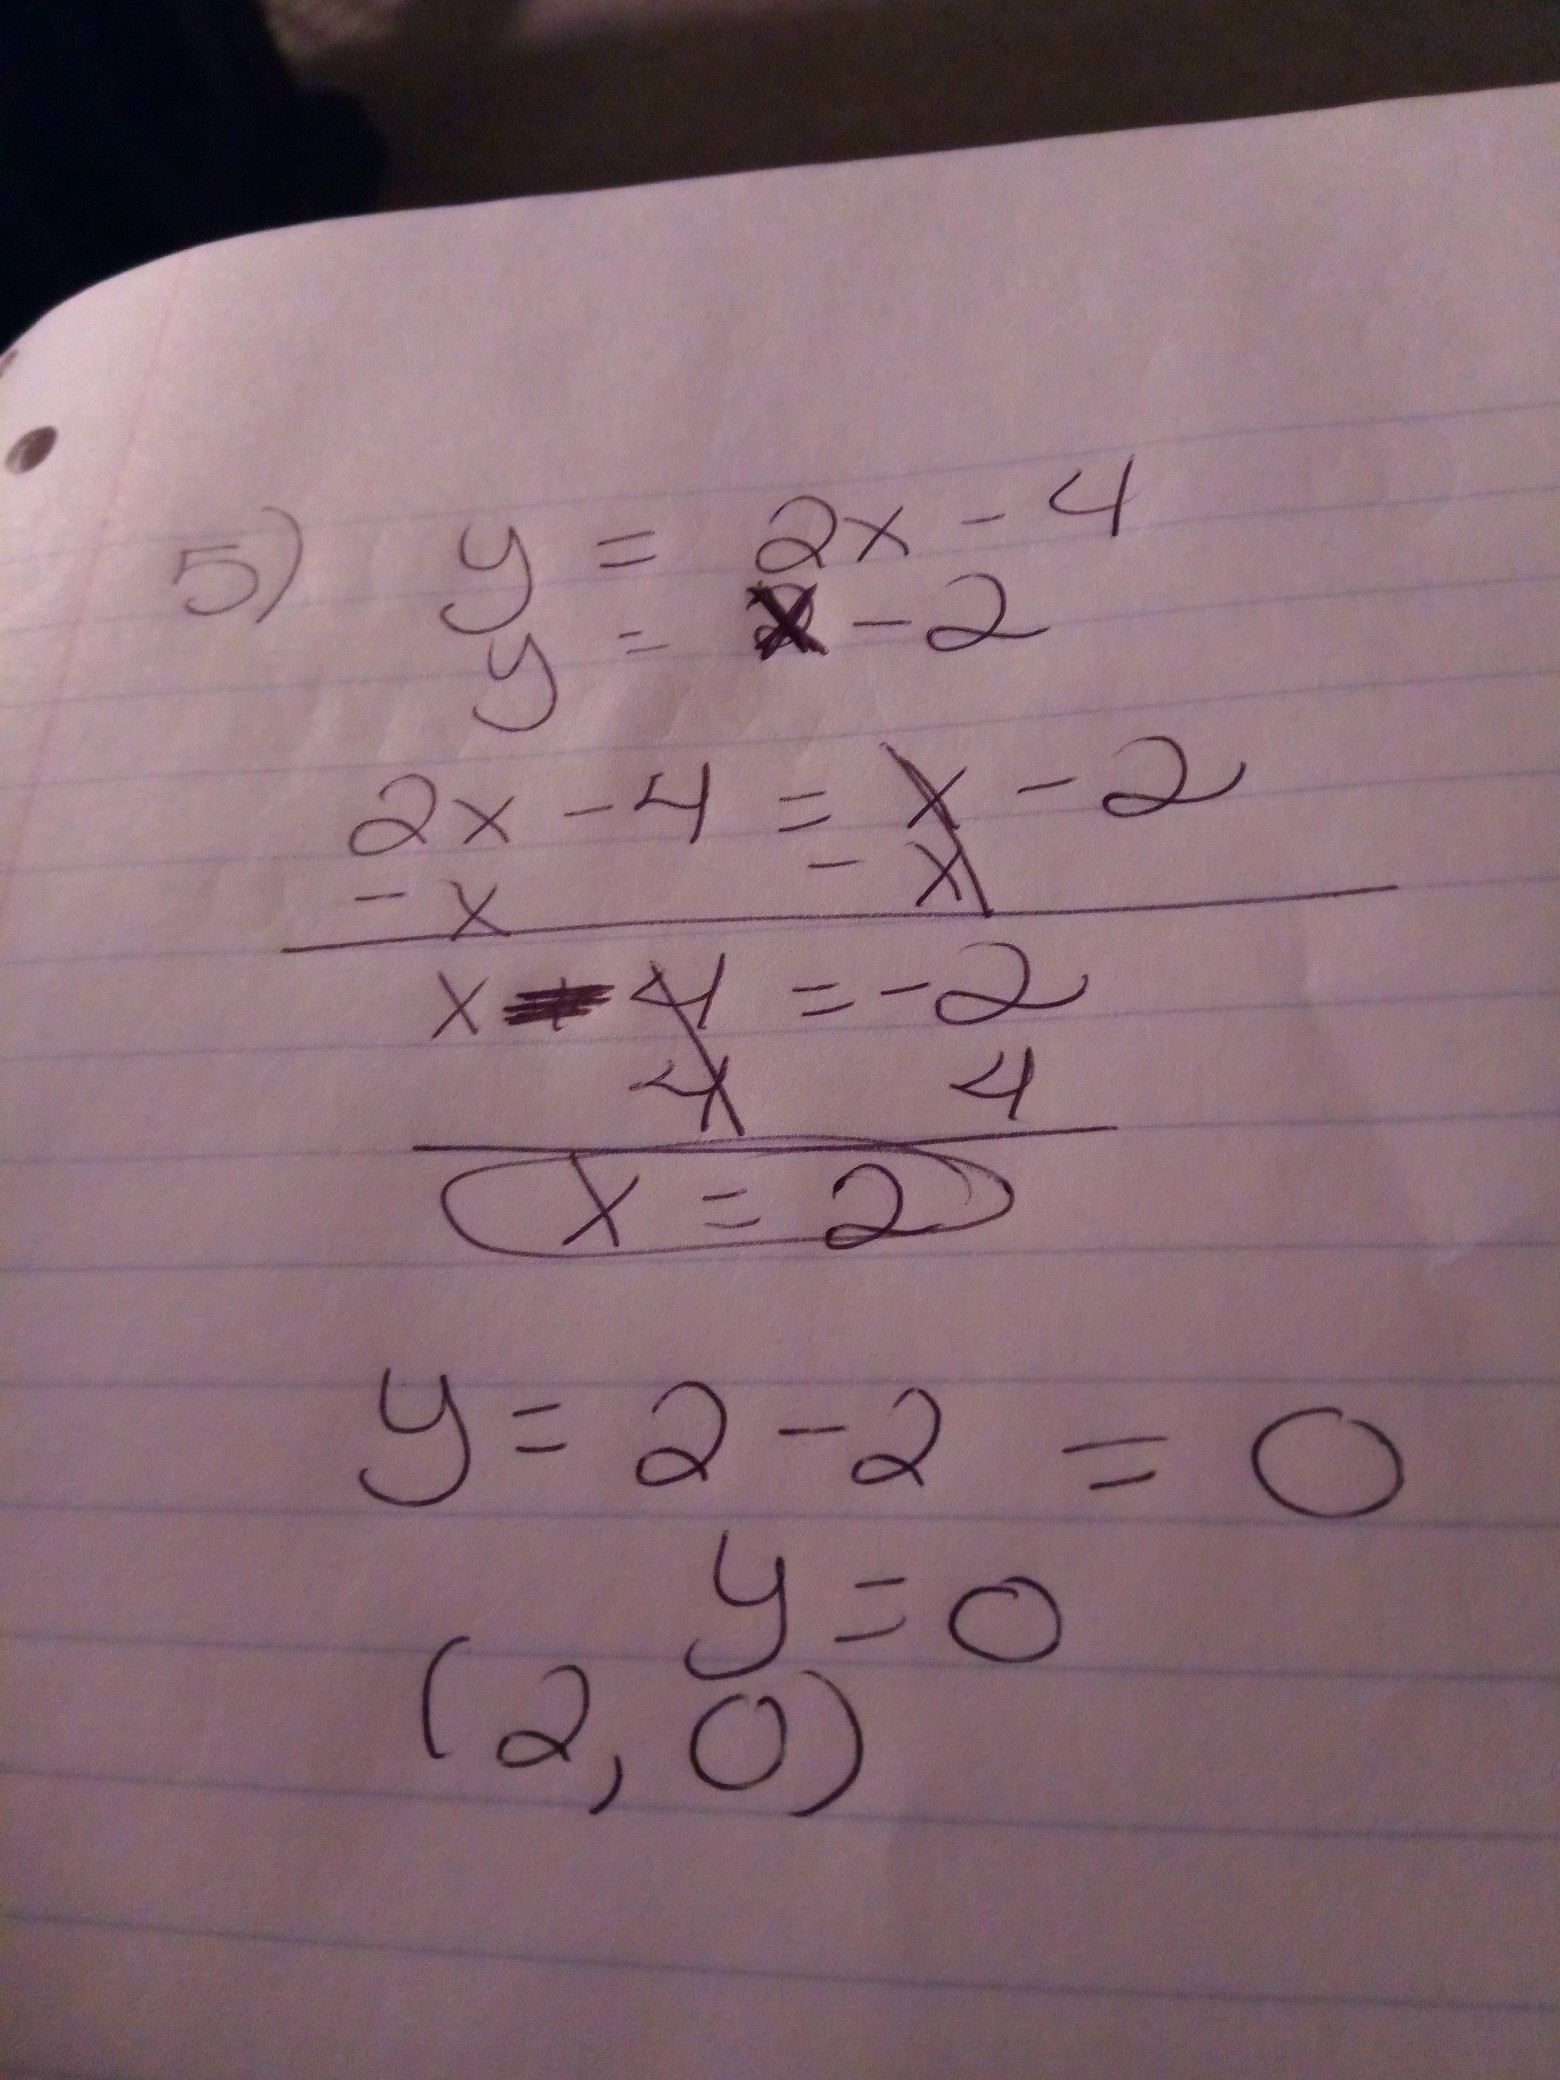 5) y = 2x - 4
y = x - 2
2x - 4 = x - 2
- x - x
x - 4 = -2
4 4
x = 2
y = 2 - 2 = 0
y = 0
(2, 0)